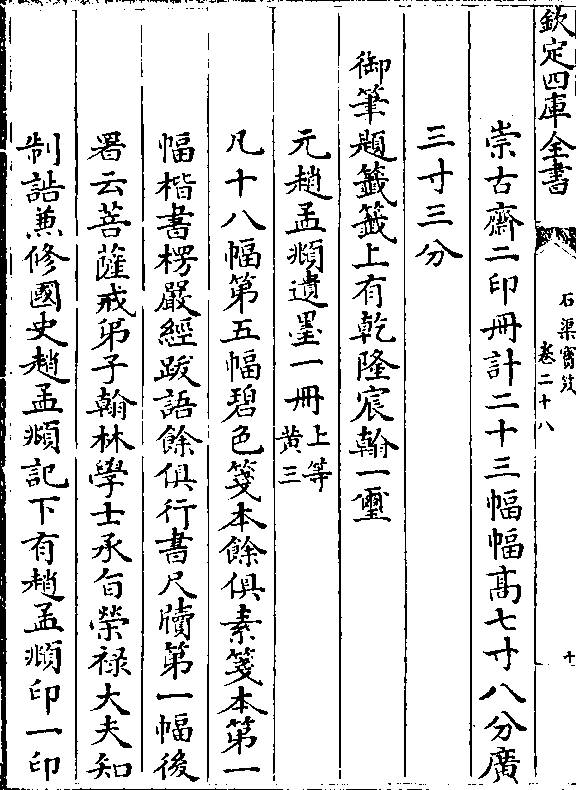 欽定四庫全書
石渠寳笈
卷二十八
十
崇古齋二印冊計二十三幅幅髙七寸八分廣
三寸三分
御筆題籤籤上有乾隆宸翰一璽
元趙孟頫遺墨一冊上等黄三
凡十八幅第五幅碧色箋本餘俱素箋本第一
幅楷書楞嚴經跋語餘俱行書尺牘第一幅後
署云菩薩戒弟子翰林學士承旨榮禄大夫知
制誥兼修國史趙孟頫記下有趙孟頫印一印